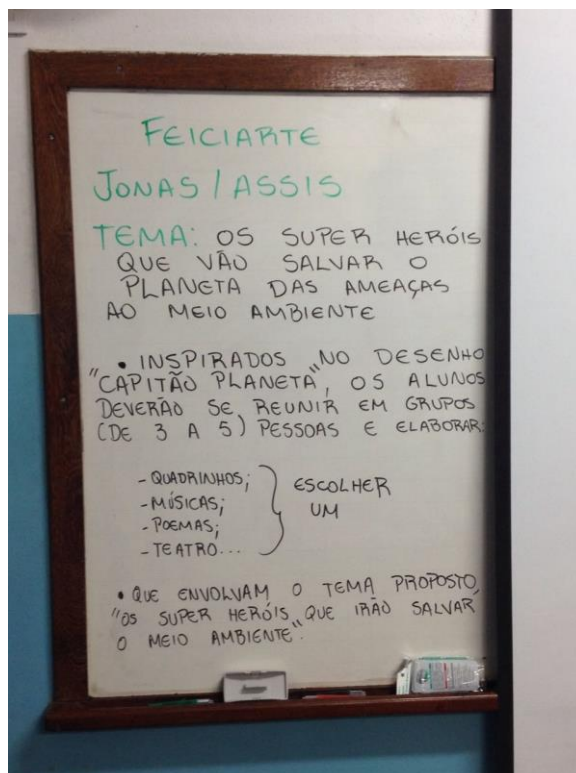 FEICIARTE
JONAS / ASSIS
TEMA: OS SUPER HERÓIS
QUE VÃO SALVAR O
PLANETA DAS AMEAÇAS
AO MEIO AMBIENTE
• INSPIRADOS NO DESENHO
"CAPITÃO PLANETA", OS ALUNOS
DEVERÃO SE REUNIR EM GRUPOS
(DE 3 A 5) PESSOAS E ELABORAR:
- QUADRINHOS;
- MÚSICAS;
- POEMAS;
- TEATRO...
ESCOLHER
UM
• QUE ENVOLVAM O TEMA PROPOSTO,
"OS SUPER HERÓIS QUE IRÃO SALVAR
O MEIO AMBIENTE".